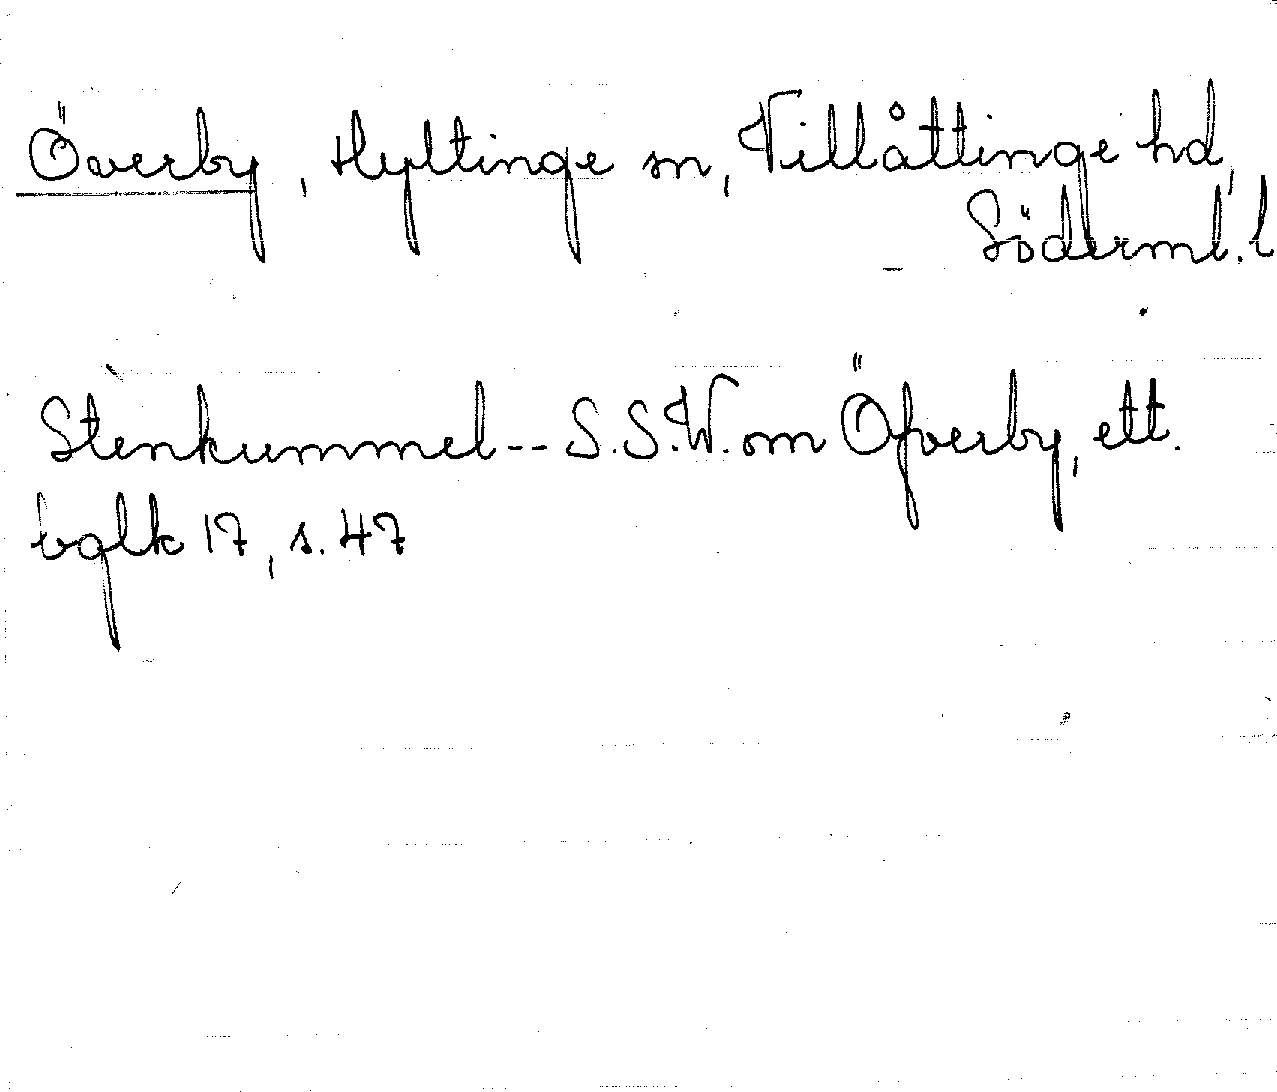 Överby, Hyltinge sn, Villåttinge hd,
Söderml. l
Stenkummel -- S.S.W. om Öfverby, ett.
bglk 17, s. 47